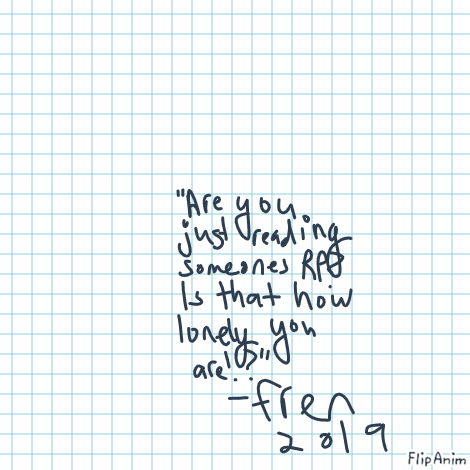 "Are you
just reading
someones RPG
Is that how
lonely you
are!?"
-fren
2019
FlipAnim